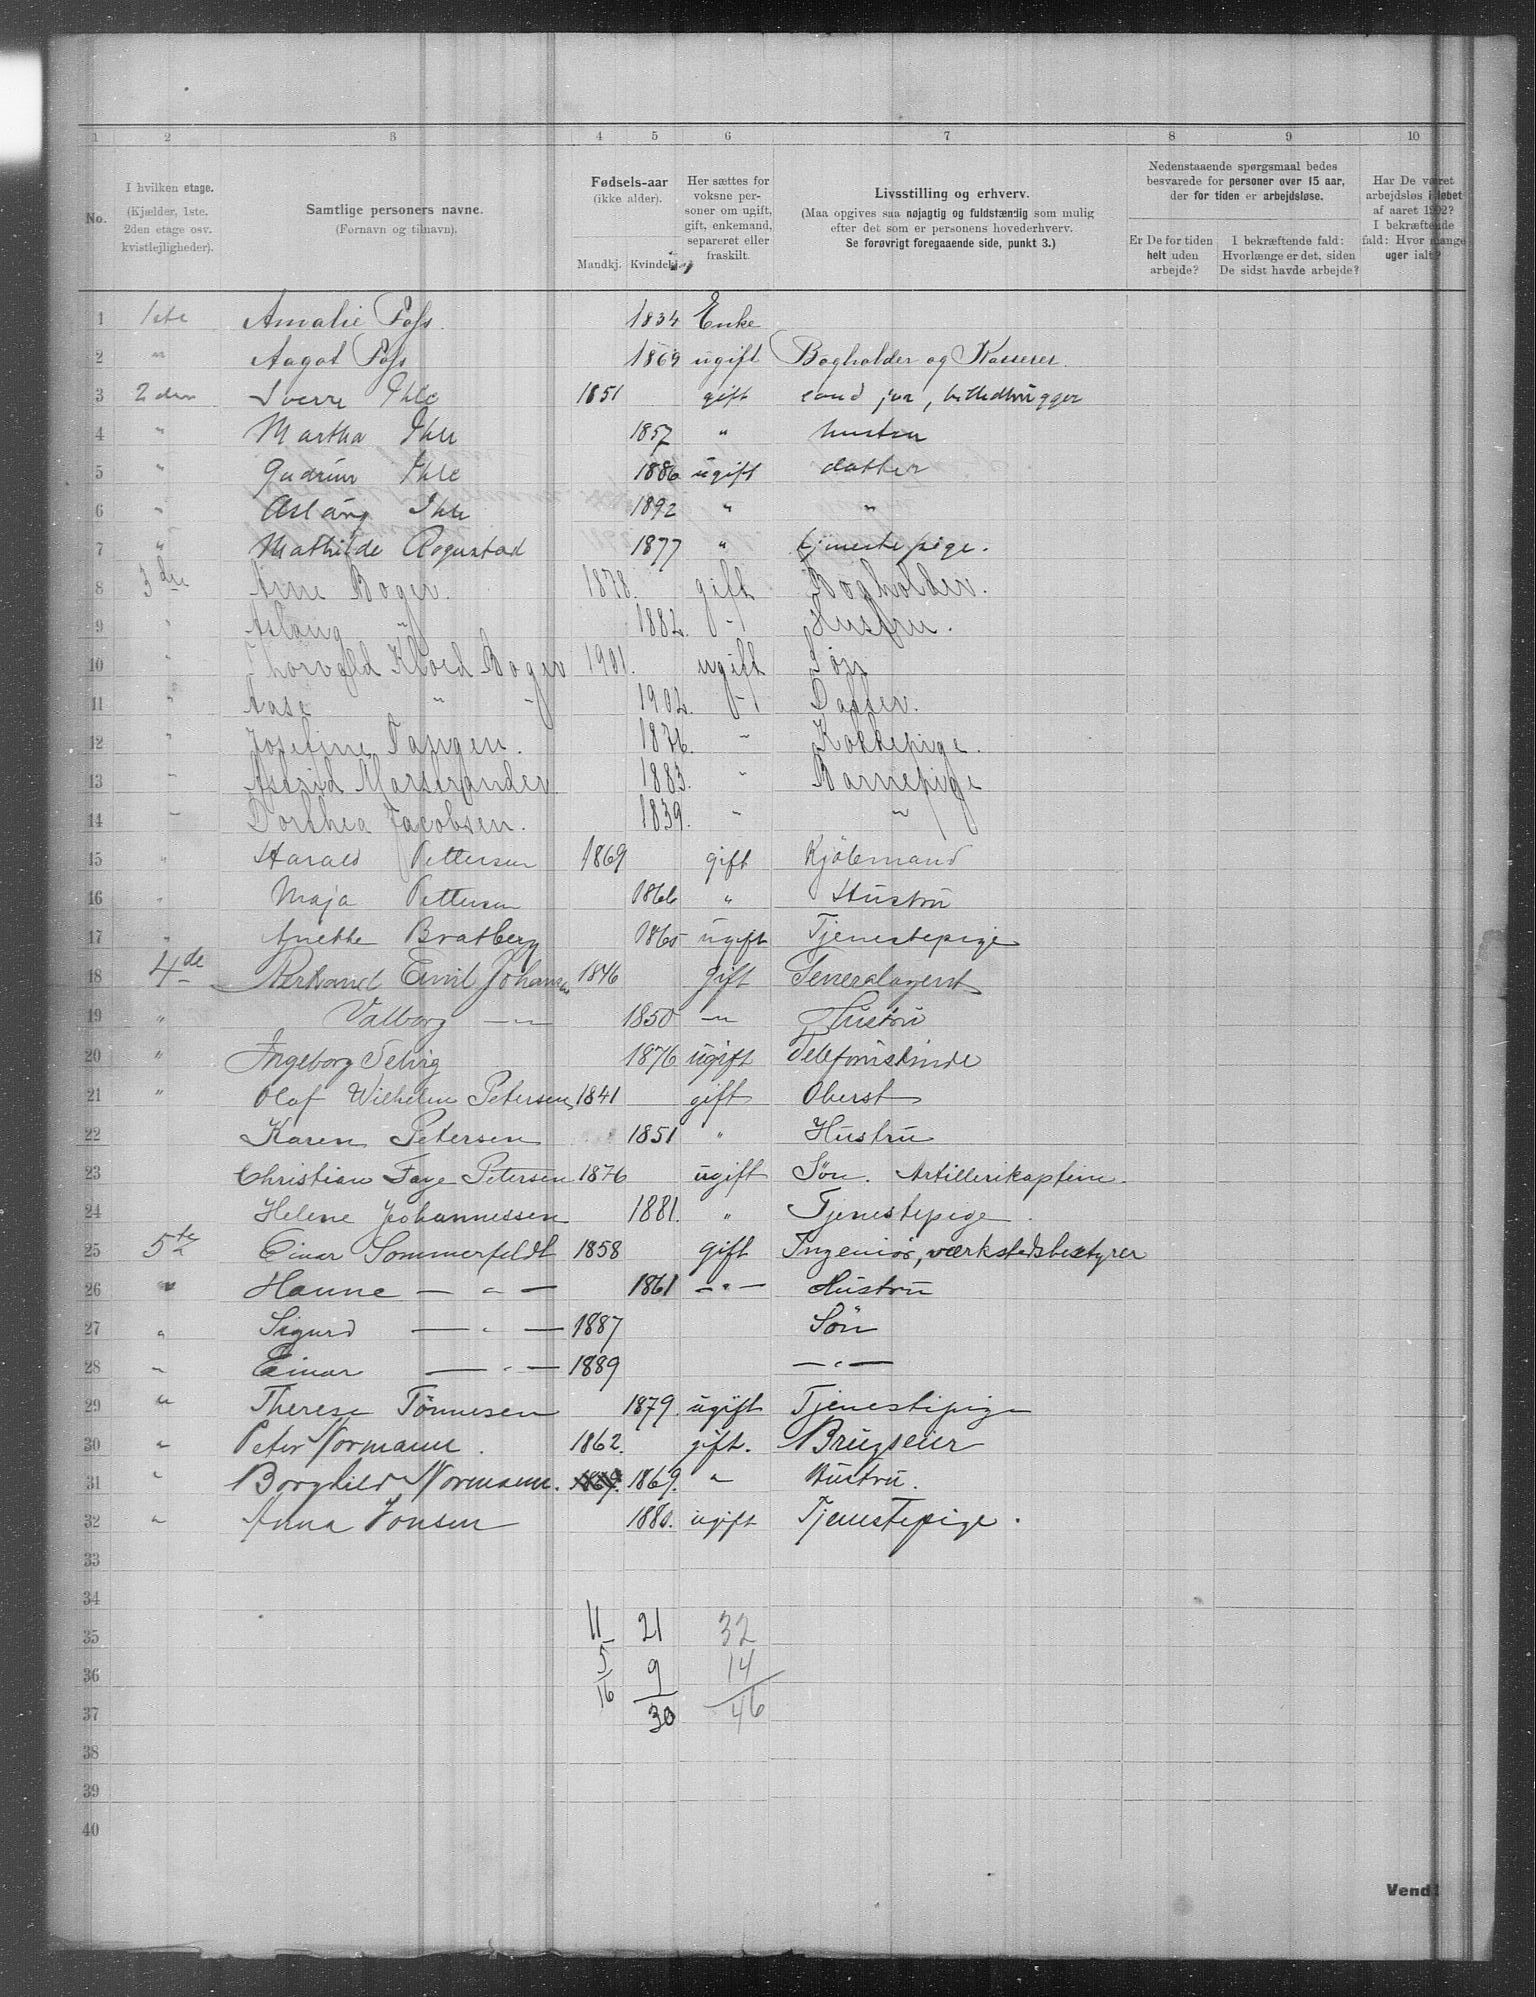 1 2 3 4 5 6 7 8 9 10
No.
I hvilken etage.
(Kjælder, 1ste,
2den etage osv.
kvistlejligheder).
Samtlige personers navne.
(Fornavn og tilnavn).
Fødsels-aar
(ikke alder).
Mandkj. Kvindekj.
Her sættes for
voksne per-
soner om ugift,
gift, enkemand,
separeret eller
fraskilt.
Livsstilling og erhverv.
(Maa opgives saa nøjagtig og fuldstændig som mulig
efter det som er personens hovederhverv.
Se forøvrigt foregaaende side, punkt 3.)
Nedenstaaende spørgsmaal bedes
besvarede for personer over 15 aar,
der for tiden er arbejdsløse.
Er De for tiden
helt uden
arbejde?
I bekræftende fald:
Hvorlænge er det, siden
De sidst havde arbejde?
Har De været
arbejdsløs i løbet
af aaret 1902?
I bekræftende
fald: Hvor mange
uger ialt?
1 1ste Amalie Foss 1834 Enke
2 " Aagot Foss 1869 ugift Bogholder og Kasserer
3 2den Sverre Ihle 1851 gift cand jur, billedhugger
4 " Martha Ihle 1857 " hustru
5 " Gudrun Ihle 1886 ugift datter
6 " Aslaug Ihle 1892 " "
7 " Mathilde Rognstad 1877 " tjenestepige.
8 3die Arne Boger. 1878. gift Bogholder.
9 " Aslaug " 1882. " Hustru.
10 " Thorvald Kloed Boger 1901. ugift Søn
11 " Aase " " 1902. " Datter.
12 " Josefine Tangen. 1876. " Kokkepige.
13 " Astrid Marstrander. 1883. " Barnepige
14 " Dorthea Jacobsen. 1839. " "
15 " Harald Pettersen 1869 gift Kjøbmand
16 " Maja Pettersen 1866 " Hustru
17 " Anethe Bratberg 1865 ugift Tjenestepige
18 4de Emil 1846 gift Generalagent
19 " Valborg — " — 1850 — " Hustru
20 " Ingeborg Selvig 1876 ugift Telefonistinde
21 " Olaf Wilhelm Petersen 1841 gift Oberst
22 Karen Petersen 1851 " Hustru
23 Christian Faye Petersen 1876 ugift Søn. Artillerikaptein.
24 Helene Johannessen 1881. " Tjenestepige.
25 5te Einar Sommerfeldt 1858 gift Ingeniør, værkstedsbestyrer
26 " Hanne — " — 1861 — " — Hustru
27 " Sigurd — " — 1887 Søn
28 " Einar — " — 1889 — " —
29 " Therese Tönnesen 1879. ugift Tjenestepige
30 " Peter Normann. 1862. gift. Brugseier
31 " Borghild Normann. 1869. 1869. " Hustru.
32 " Anna Jonsen 1880. ugift Tjenestepige.
33
34
35 11 21 32
36 5 9 14
37 16 30 46
38
39
40
Vend!